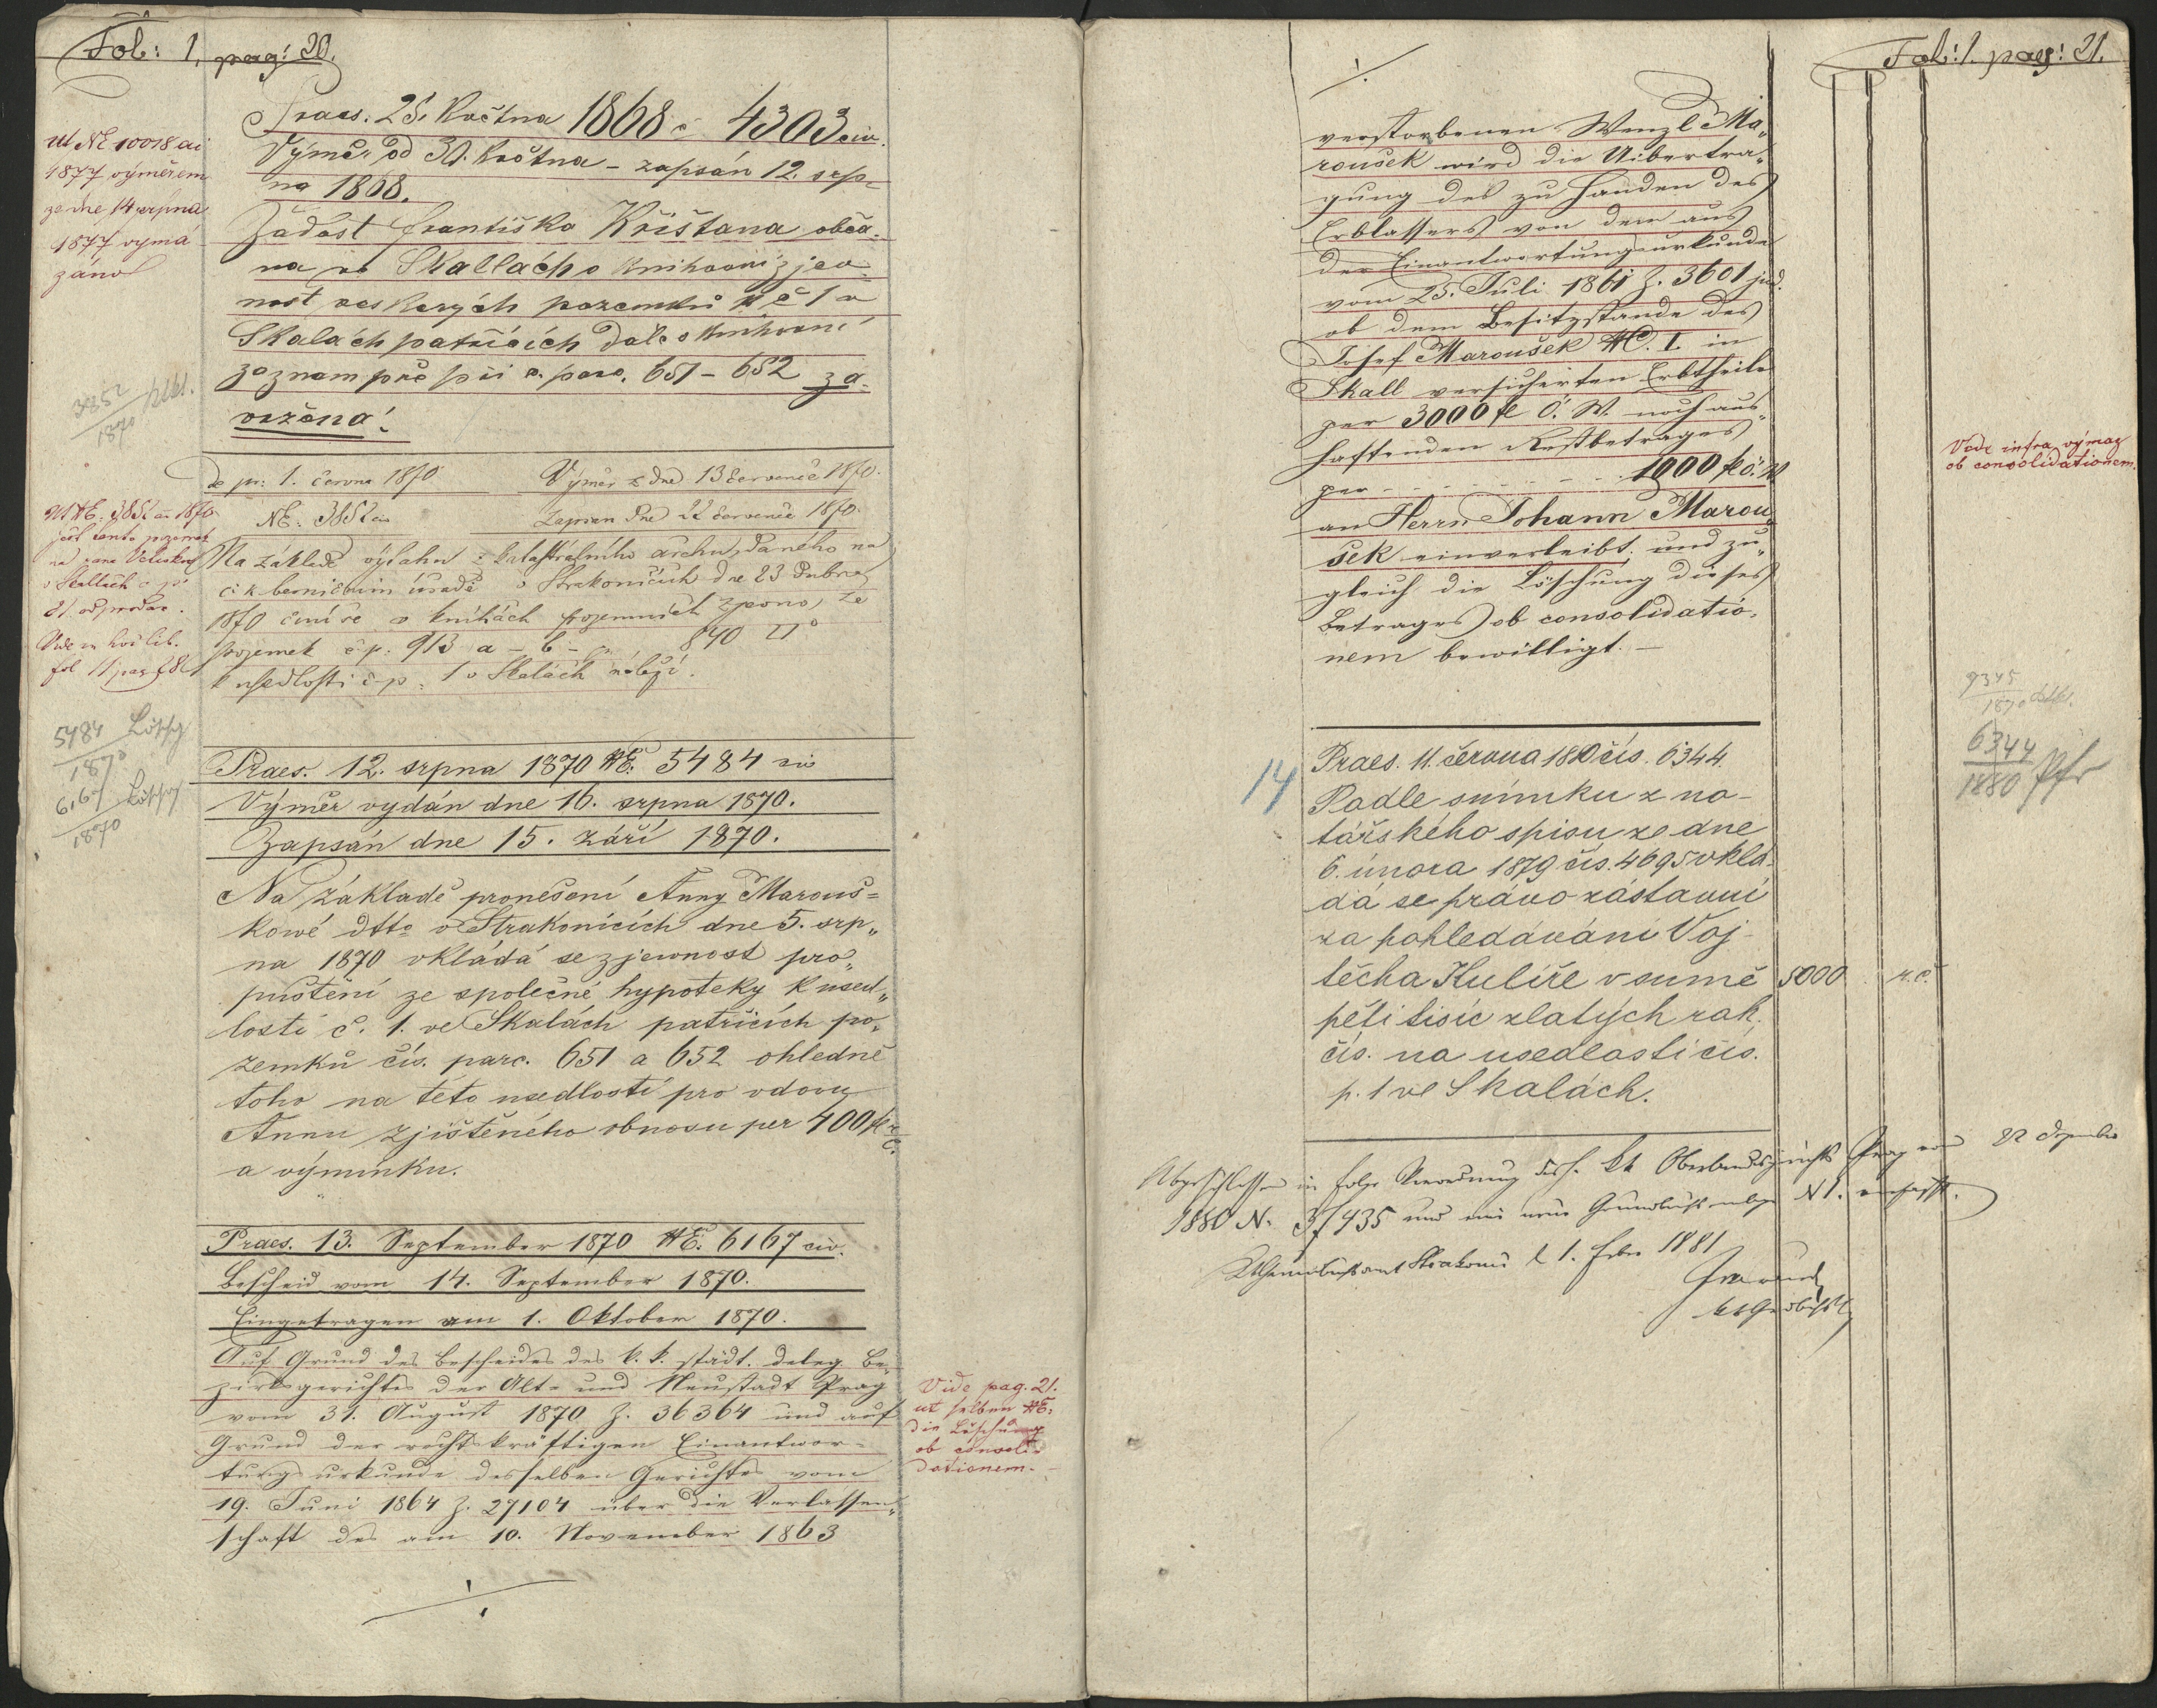 Fol: 1. pag: 20.
Praes. 25. Května 1868 č 4303 civ.
Výměr od 30. Května - zapsán 12. srp-
na 1868.
Žádost františka Křištana obča-
na ve Skallách o knihovní zjev-
nost veskerých pozemků NČ 1 v
Skalách patřících dále o knihovní
poznam pře při č. parc. 651 - 652 za-
vržena!
ut NE 10018 ai
1877 výměrem
ze dne 14 srpna
1877 vymá
záno
3852
1870
de pr: 1. června 1870
Výměr z dne 13 července 1870.
NE: 3852 civ
Zapsan dne 22 července 1870.
Na základě výtahu z katastrálního archu, daného na
c. k. berničním úřadě v Strakonicích dne 23 dubna
1870 činí se v knihách pozemních zjevno, že
pozemek č p: 913 a - b - 840 □°
k usedlosti č p. 1 v Skalách náleží.
ut NE. 3852 ai 1870
jest tento pozemek
na
v Skallách č p
21. odprodán.
Vide
fol 11 pag 281
5484 Löschg
1870
6167 Löschg
1870
Praes. 12. srpna 1870 NE. 5484 civ
Výměr vydán dne 16. srpna 1870.
Zapsán dne 15. září 1870.
Na základě pronešení Anny Marouš=
kowé dtto v Strakonicích dne 5. srp„
na 1870 vkládá se zjevnost pro„
puštění ze společné hypoteky k used„
losti č. 1. ve Skalách patřících po„
zemků čís. parc. 651 a 652 ohledně
toho na této usedlosti pro vdovu
Annu zjištěného obnosu per 400 fl r.
č.
a výminku.
Praes. 13. September 1870 NE: 6167 civ.
Bescheid vom 14. September 1870.
Eingetragen am 1. Oktober 1870.
Auf Grund des Bescheides des k. k. städt. deleg. Be„
zirksgerichtes der Alt- und Neustadt Prag
vom 31. August 1870 Z. 36364 und auf
Grund der rechtskräftigen Einantwor=
tungsurkunde desselben Gerichtes vom
19. Juni 1864 Z. 27104 über die Verlassen„
schaft des am 10. November 1863
Vide pag. 21.
ut selben NE:
die Löschung
ob consoli-
dationem.
Fol: 1. pag: 21.
verstorbenen Wenzl Ma„
roušek wird die Uibertra„
gung des zu Handen des
Erblassers von dem aus
der Einantwortungsurkunde
vom 25. Juli 1861 Z. 3601 jud.
ob dem Besitzstande des
Josef Maroušek NC. I. in
Skall versicherten Erbtheile
per 3000 fl Ö. W. noch aus„
haftenden Restbetrages
per - - - - - - - 1000 fl ö. W
an Herrn Johann Marou„
šek einverleibt und zu„
gleich die Löschung dieses
Betrages ob consolidatio„
nem bewilligt. —
Vide infra výmaz
ob consolidationem.
9345
1870
6344
1880
14
Praes. 11. června 1880 čís. 6344.
Podle snímku z no-
tářského spisu ze dne
6. února 1879 čís. 4695 vklá-
dá se právo zástavní
za pohledávání Voj-
těcha Kulíře v sumě 5000 r. č.
pěti tisíc zlatých rak.
čís. na usedlosti čís.
p. 1 ve Skalách.
Abgeschlossen in Folge Verordnung des h. kk Oberlandesgerichts Prag vom 22 Dezember
1880 N. 37435 und eine neue Grundbuchseinlage N 1. verfasst.
Grundbuchsamt Strakonic d 1. Febr 1881